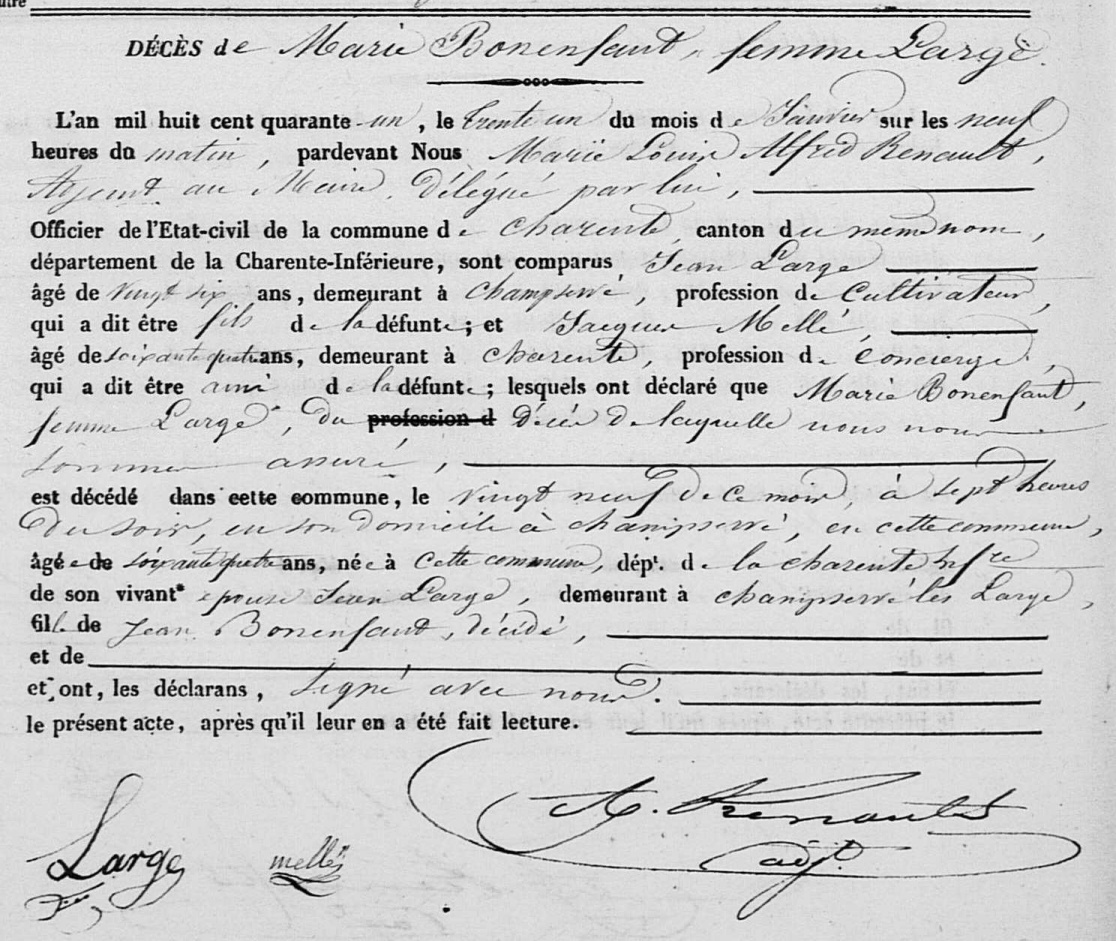 DÉCÈS de Marie Bonenfant, femme Large.
L'an mil huit cent quarante-un, le trente un du mois de Janvier sur les neuf
heures du matin, pardevant Nous Marie Louis Alfred Renault,
au Maire, Délégué par lui,
Officier de l'Etat-civil de la commune de Charente, canton du même nom,
département de la Charente-Inférieure, sont comparus Jean Large
âgé de vingt six ans, demeurant à champservé, profession de Cultivateur,
qui a dit être fils de la défunte; et Jacques Mellé,
âgé de soixante quatre ans, demeurant à charente, profession de Concierge,
qui a dit être ami de la défunte; lesquels ont déclaré que Marie Bonenfant,
femme Large, du profession d Décès de laquelle nous nous
sommes assuré,
est décédé dans cette commune, le vingt neuf de ce mois, à sept heures
du soir, en son domicile à champservé, en cette commune,
âgée de soixante quatre ans, née à cette commune, dépt. de la charente Infre
de son vivant épouse Jean Large, demeurant à champservé les Large,
fill. de Jean Bonenfant, décédé,
et de
et ont, les déclarans, signé avec nous.
le présent acte, après qu'il leur en a été fait lecture.
Large mellé A. Renault
adjt.